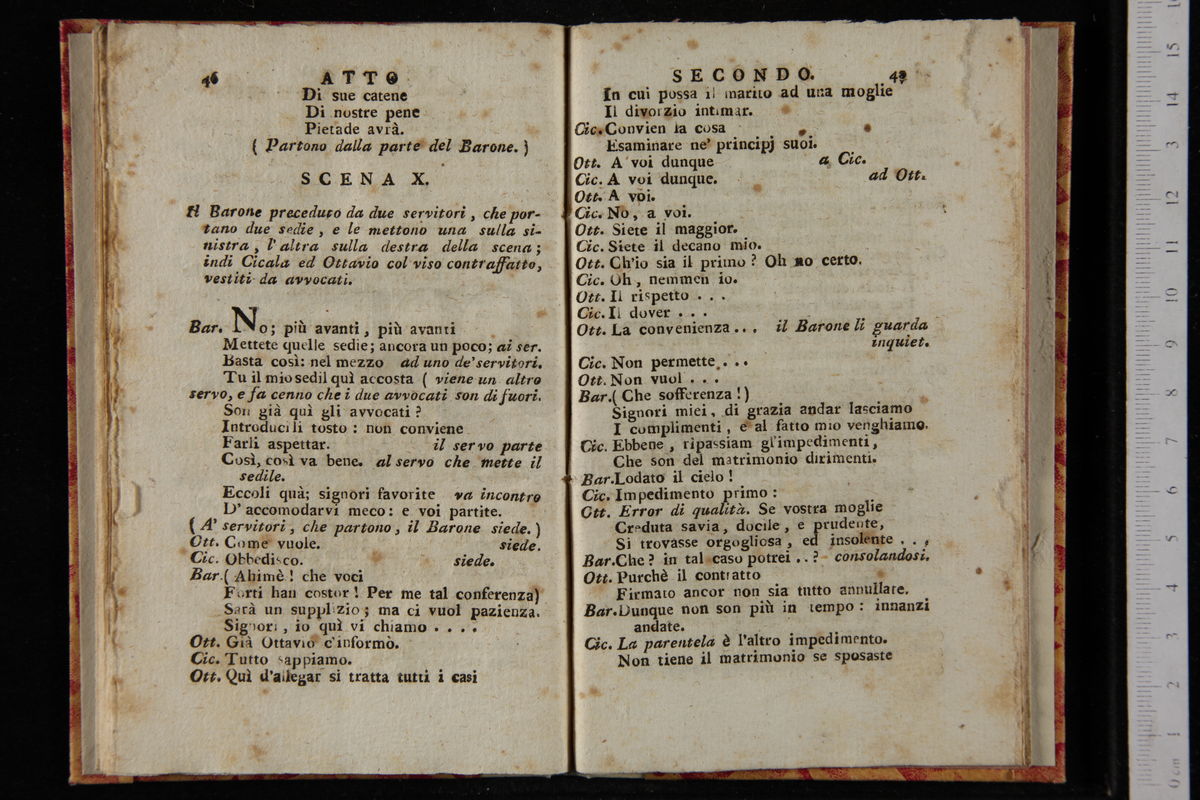 46 ATTO
Di sue catene
Di nostre pene
Pietade avrà.
( Partono dalla parte del Barone. )
SCENA X.
Il Barone preceduto da due servitori, che por-
tano due sedie, e le mettono una sulla si-
nistra, l'altra sulla destra della scena;
indi Cicala ed Ottavio col viso contraffatto,
vestiti da avvocati.
Bar. No; più avanti, più avanti
Mettete quelle sedie; ancora un poco; ai ser.
Basta così: nel mezzo ad uno de' servitori.
Tu il mio sedil quì accosta ( viene un altro
servo, e fa cenno che i due avvocati son di fuori.
Son già quì gli avvocati?
Introducili tosto: non conviene
Farli aspettar. il servo parte
Così, così va bene. al servo che mette il
sedile.
Eccoli quà; signori favorite va incontro
D'accomodarvi meco: e voi partite.
( A' servitori, che partono, il Barone siede. )
Ott. Come vuole. siede.
Cic. Obbedisco. siede.
Bar. ( Ahimè! che voci
Forti han costor! Per me tal conferenza)
Sarà un supplizio; ma ci vuol pazienza.
Signori, io quì vi chiamo . . . .
Ott. Già Ottavio c'informò.
Cic. Tutto sappiamo.
Ott. Quì d'allegar si tratta tutti i casi
SECONDO.
In cui possa il marito ad una moglie
Il divorzio intimar.
Cic. Convien la cosa
Esaminare ne' principj suoi.
Ott. A voi dunque a Cic.
Cic. A voi dunque. ad Ott.
Ott. A voi.
Cic. No, a voi.
Ott. Siete il maggior.
Cic. Siete il decano mio.
Ott. Ch'io sia il primo? Oh no certo.
Cic. Oh, nemmen io.
Ott. Il rispetto . . .
Cic. Il dover . . .
Ott. La convenienza . . . il Barone li guarda
inquiet.
Cic. Non permette . . .
Ott. Non vuol . . .
Bar. ( Che sofferenza!)
Signori miei, di grazia andar lasciamo
I complimenti, e al fatto mio venghiamo.
Cic. Ebbene, ripassiam gl'impedimenti,
Che son del matrimonio dirimenti.
Bar. Lodato il cielo!
Cic. Impedimento primo:
Ott. Error di qualità. Se vostra moglie
Creduta savia, docile, e prudente,
Si trovasse orgogliosa, ed insolente . . ,
Bar. Che? in tal caso potrei . . ? consolandosi.
Ott. Purchè il contratto
Firmato ancor non sia tutto annullare.
Bar. Dunque non son più in tempo: innanzi
andate.
Cic. La parentela è l'altro impedimento.
Non tiene il matrimonio se sposaste